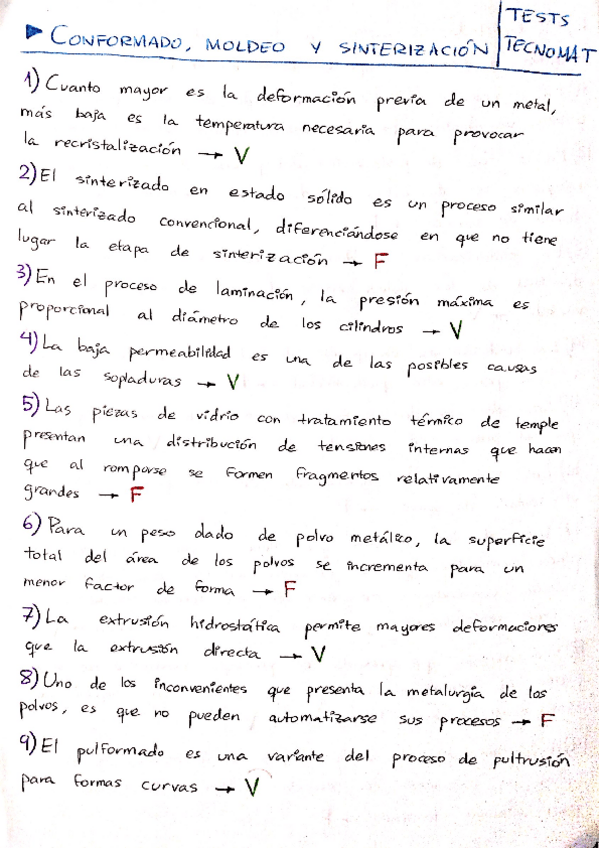 ► CONFORMADO, MOLDEO Y SINTERIZACIÓN
TESTS
TECNOMAT
1) Cuanto mayor es la deformación previa de un metal,
más baja es la temperatura necesaria para provocar
la recristalización → V
2) El sinterizado en estado sólido es un proceso similar
al sinterizado convencional, diferenciándose en que no tiene
lugar la etapa de sinterización → F
3) En el proceso de laminación, la presión máxima es
proporcional al diámetro de los cilindros → V
4) La baja permeabilidad es una de las posibles causas
de las sopladuras → V
5) Las piezas de vidrio con tratamiento térmico de temple
presentan una distribución de tensiones internas que hacen
que al romperse se formen fragmentos relativamente
grandes → F
6) Para un peso dado de polvo metálico, la superficie
total del área de los polvos se incrementa para un
menor factor de forma → F
7) La extrusión hidrostática permite mayores deformaciones
que la extrusión directa → V
8) Uno de los inconvenientes que presenta la metalurgia de los
polvos, es que no pueden automatizarse sus procesos → F
9) El pulformado es una variante del proceso de pultrusión
para formas curvas → V